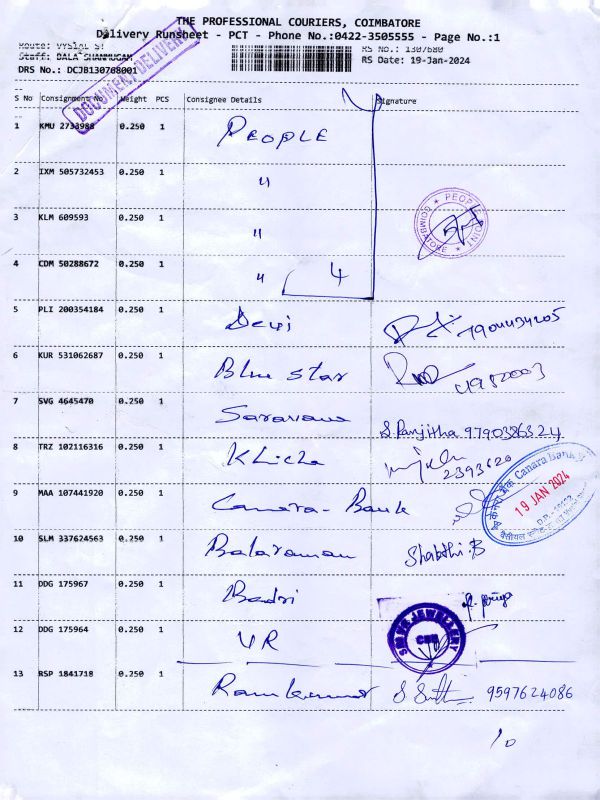 THE PROFESSIONAL COURIERS, COIMBATORE
Delivery Runsheet - PCT - Phone No.:0422-3505555 - Page No.:1
Route: VYSIAL ST
RS No.: 1307680
Staff: BALA SHANMUGAM
RS Date: 19-Jan-2024
DRS No.: DCJB130768001
DOCUMENT DELIVERY
S No Consignment No Weight PCS Consignee Details Signature
1 KMU 2733988 0.250 1 PEOPLE
2 IXM 505732453 0.250 1 "
3 KLM 609593 0.250 1 "
PEOPLE POINT
COIMBATORE
4 CDM 50288672 0.250 1 " 4
5 PLI 200354184 0.250 1 Devi
6 KUR 531062687 0.250 1 Blue star
7 SVG 4645470 0.250 1 Saravana S. Ranjitha 9790386324
8 TRZ 102116316 0.250 1 2393620
9 MAA 107441920 0.250 1 Canara - Bank
Canara Bank
19 JAN 2024
10 SLM 337624563 0.250 1 Balaraman Shabthi.B
11 DDG 175967 0.250 1 Badri
12 DDG 175964 0.250 1 VR
JEWELLERY
CBE
13 RSP 1841718 0.250 1 Ramkumar 9597624086
10